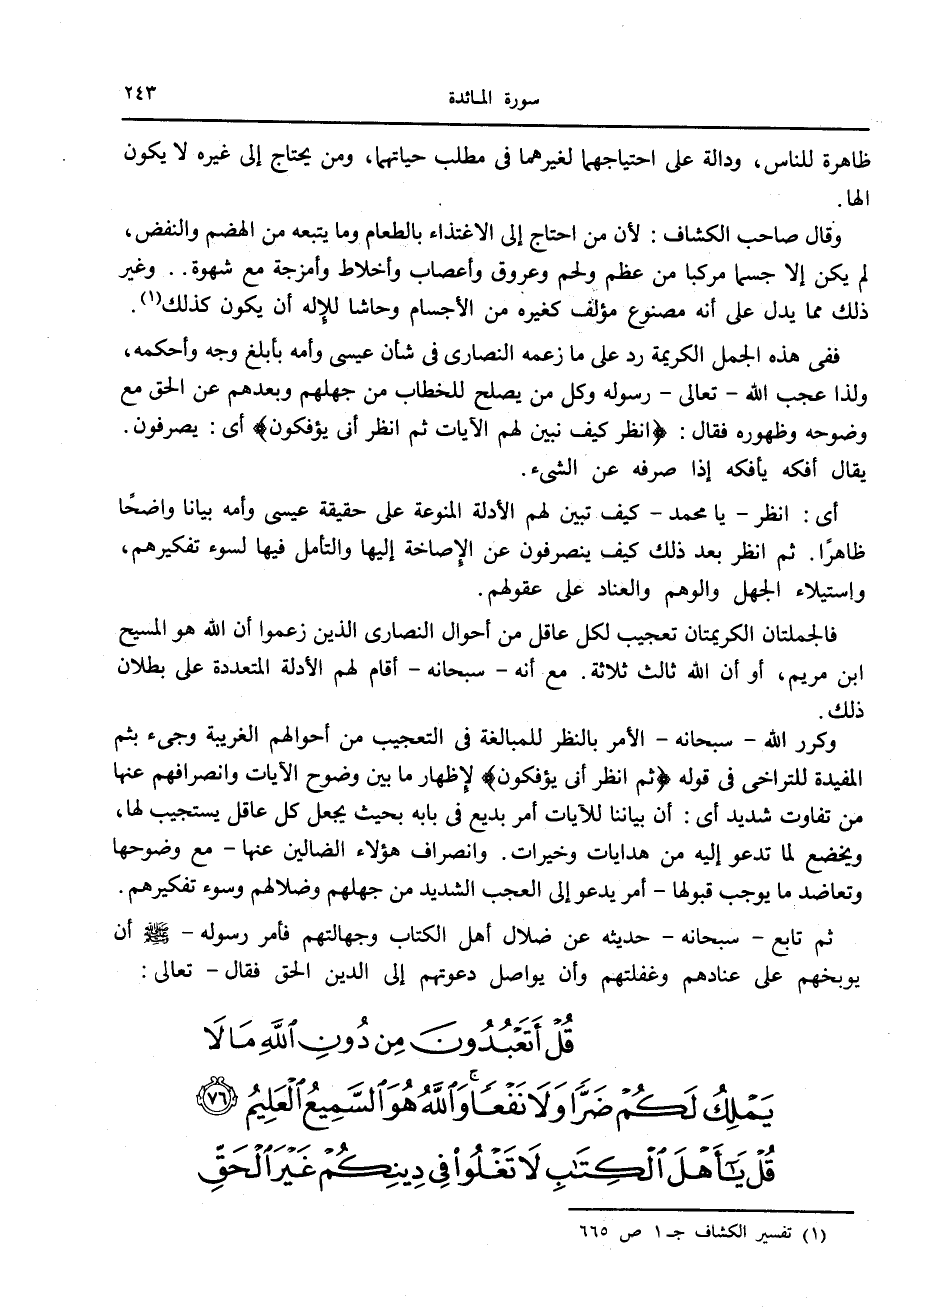 سورة المائدة ٢٤٣
ظاهرة للناس، ودالة على احتياجهما لغيرهما فى مطلب حياتهما، ومن يحتاج إلى غيره لا يكون
الها.
وقال صاحب الكشاف : لأن من احتاج إلى الاغتذاء بالطعام وما يتبعه من الهضم والنفض،
لم يكن إلا جسما مركبا من عظم ولحم وعروق وأعصاب وأخلاط وأمزجة مع شهوة.. وغير
ذلك مما يدل على أنه مصنوع مؤلف كغيره من الأجسام وحاشا للإله أن يكون كذلك(١).
ففى هذه الجمل الكريمة رد على ما زعمه النصارى فى شأن عيسى وأمه بأبلغ وجه وأحكمه،
ولذا عجب الله - تعالى - رسوله وكل من يصلح للخطاب من جهلهم وبعدهم عن الحق مع
وضوحه وظهوره فقال : ﴿انظر كيف نبين لهم الآيات ثم انظر أنى يؤفكون﴾ أى : يصرفون.
يقال أفكه يأفكه إذا صرفه عن الشىء.
أى : انظر - يا محمد - كيف تبين لهم الأدلة المنوعة على حقيقة عيسى وأمه بيانا واضحًا
ظاهرًا. ثم انظر بعد ذلك كيف ينصرفون عن الإصاخة إليها والتأمل فيها لسوء تفكيرهم،
واستيلاء الجهل والوهم والعناد على عقولهم.
فالجملتان الكريمتان تعجيب لكل عاقل من أحوال النصارى الذين زعموا أن الله هو المسيح
ابن مريم، أو أن الله ثالث ثلاثة. مع أنه - سبحانه - أقام لهم الأدلة المتعددة على بطلان
ذلك.
وكرر الله - سبحانه - الأمر بالنظر للمبالغة فى التعجيب من أحوالهم الغريبة وجىء بثم
المفيدة للتراخى فى قوله ﴿ثم انظر أنى يؤفكون﴾ لإظهار ما بين وضوح الآيات وانصرافهم عنها
من تفاوت شديد أى : أن بياننا للآيات أمر بديع فى بابه بحيث يجعل كل عاقل يستجيب لها،
ويخضع لما تدعو إليه من هدايات وخيرات. وانصراف هؤلاء الضالين عنها - مع وضوحها
وتعاضد ما يوجب قبولها - أمر يدعو إلى العجب الشديد من جهلهم وضلالهم وسوء تفكيرهم.
ثم تابع - سبحانه - حديثه عن ضلال أهل الكتاب وجهالتهم فأمر رسوله - ﷺ أن
يوبخهم على عنادهم وغفلتهم وأن يواصل دعوتهم إلى الدين الحق فقال - تعالى :
قُلْ أَتَعْبُدُونَ مِن دُونِ ٱللَّهِ مَا لَا
يَمْلِكُ لَكُمْ ضَرًّا وَلَا نَفْعًا ۚ وَٱللَّهُ هُوَ ٱلسَّمِيعُ ٱلْعَلِيمُ ﴿٧٦﴾
قُلْ يَٰٓأَهْلَ ٱلْكِتَٰبِ لَا تَغْلُوا۟ فِى دِينِكُمْ غَيْرَ ٱلْحَقِّ
(١) تفسير الكشاف جـ١ ص ٦٦٥